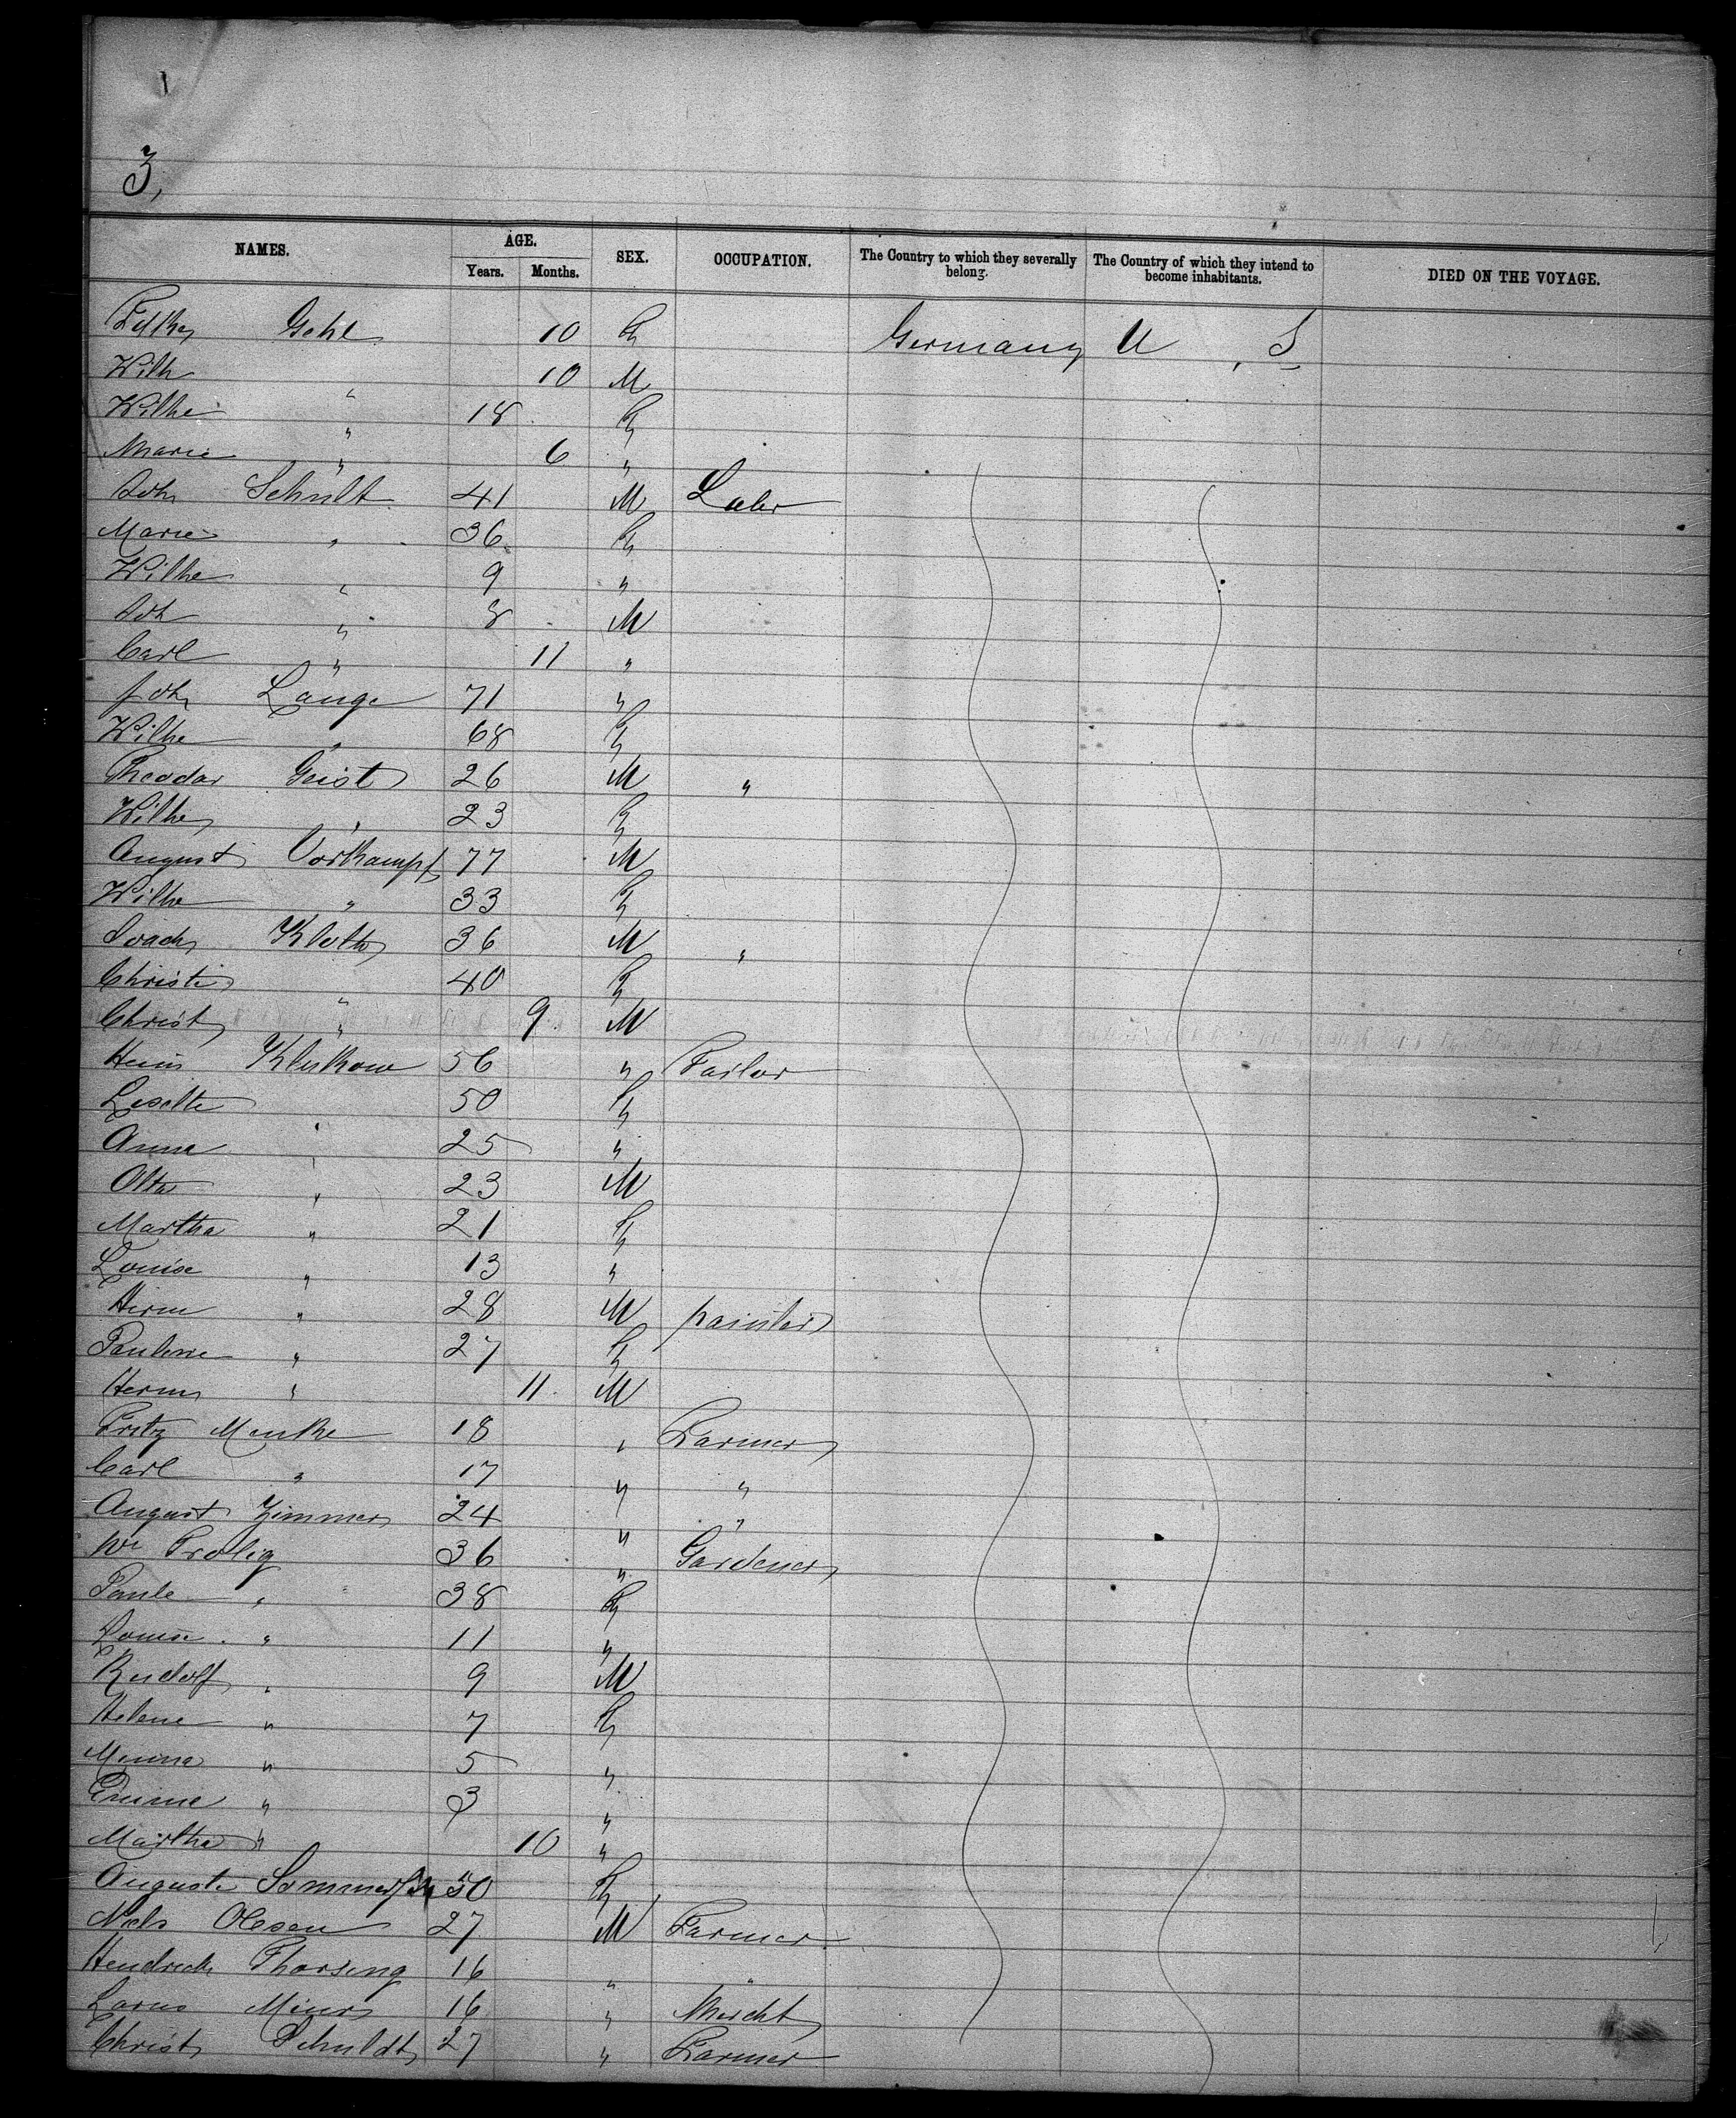 3,
NAMES. AGE. SEX. OCCUPATION. The Country to which they severally belong. The Country of which they intend to become inhabitants. DIED ON THE VOYAGE.
Years. Months.
Gehl 10 F Germany U. S.
Wilh " 10 M
Wilhe " 18 F
Marie " 6 "
Joh Schult 41 M Labr
Marie " 36 F
Wilhe " 9 "
Joh " 8 M
Carl " 11 "
Joh Lange 71 "
Wilhe " 68 F
Theodor Geist 26 M "
Wilhe " 23 F
August Vorkampf 77 M
Wilhe " 33 F
Joach Kloth 36 M "
Christi " 40 F
Christ " 9 M
Klukow 56 " Tailor
Lisette " 50 F
Anna " 25 "
Otto " 23 M
Martha " 21 F
Louise " 13 "
Herm " 28 M painter
Pauline " 27 F
Herm " 11 M
Fritz Menke 18 " Farmer
Carl " 17 " "
August Zimmer 24 " "
Wm Trolig 36 " Gardener
Paule " 38 F
Louise " 11 "
Rudolf " 9 M
Helene " 7 F
Minna " 5 "
Emme " 3 "
Martha " 10 "
Auguste 50 F
Niels Olesen 27 M Farmer
Hendrick Thorsing 16 " "
16 " Mercht
Christ Schuldt 27 " Farmer